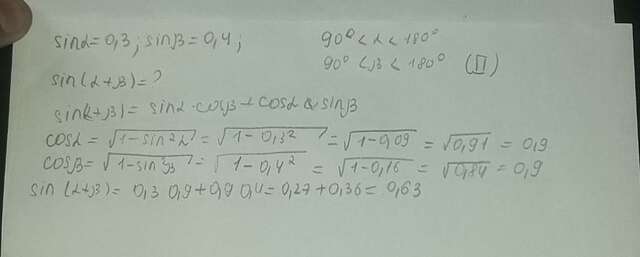 sinα=0,3; sinβ=0,4; 90°<α<180°
90°<β<180° (II)
sin(α+β)=?
sin(α+β)= sinα·cosβ+cosα·sinβ
cosα= √1-sin²α = √1-0,3² = √1-0,09 = √0,91 = 0,9
cosβ= √1-sin²β = √1-0,4² = √1-0,16 = √0,84 = 0,9
sin(α+β)= 0,3 0,9+0,9 0,4=0,27+0,36= 0,63